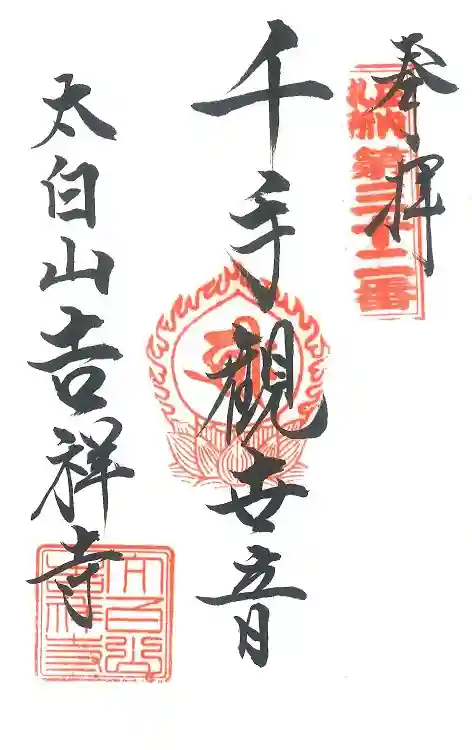 奉拝
第三十二番
千手観世音
太白山吉祥寺
太白山吉祥寺